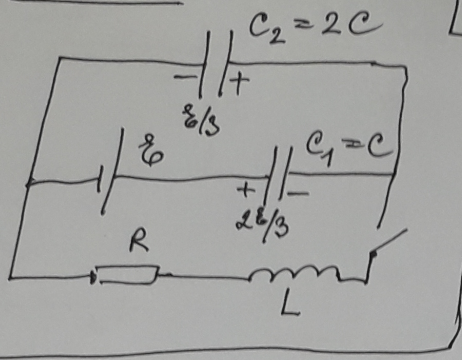 C₂ = 2C
− +
ℰ/3
ℰ
C₁ = C
+ −
2ℰ/3
R
L